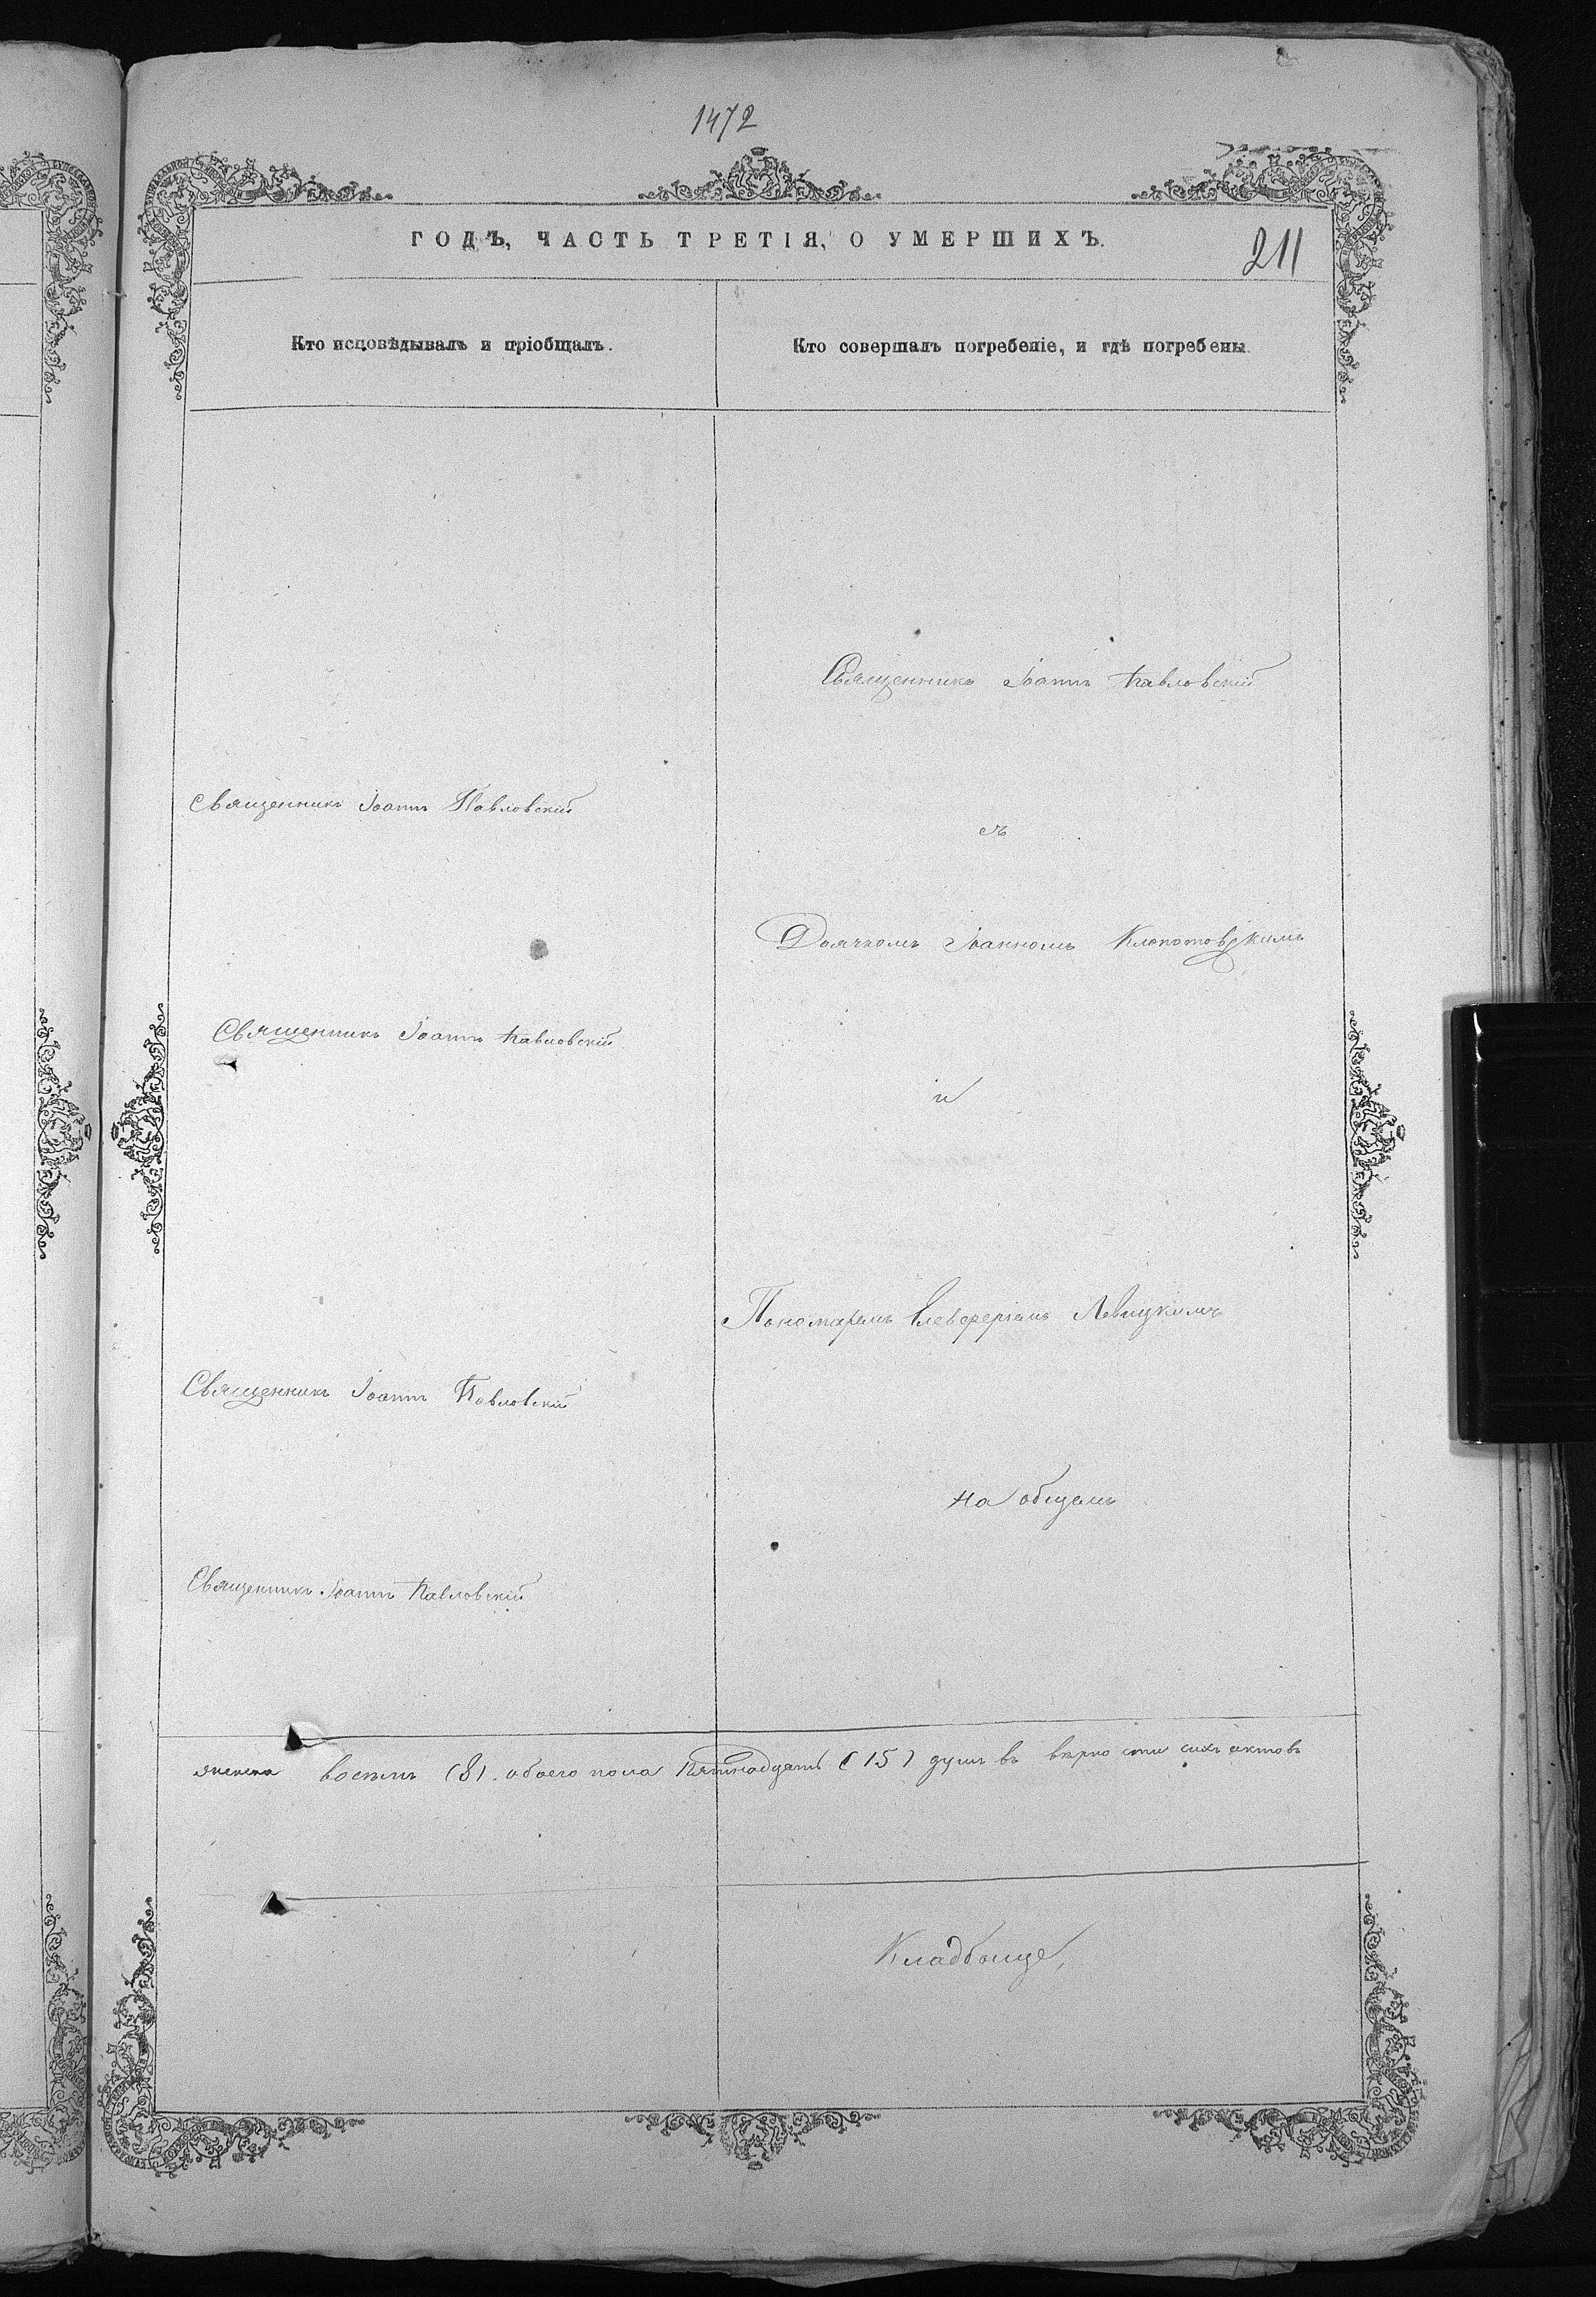 1472
ГОДЪ, ЧАСТЬ ТРЕТІЯ, О УМЕРШИХЪ.
211
Кто исповѣдывалъ и пріобщалъ.
Кто совершалъ погребеніе, и гдѣ погребены.
Священникъ Іоаннъ Павловскій
Священникъ Іоаннъ Павловскій
съ
Дьячкомъ Іоанномъ Клопотовскимъ
Священникъ Іоаннъ Павловскій
и
Пономаремъ Елевферіемъ Левицкимъ
Священникъ Іоаннъ Павловскій
на общемъ
Священникъ Іоаннъ Павловскій
восемь (8). обоего пола Пятнадцать (15) душъ въ вѣрно сти сихъ актовъ
Кладбище,